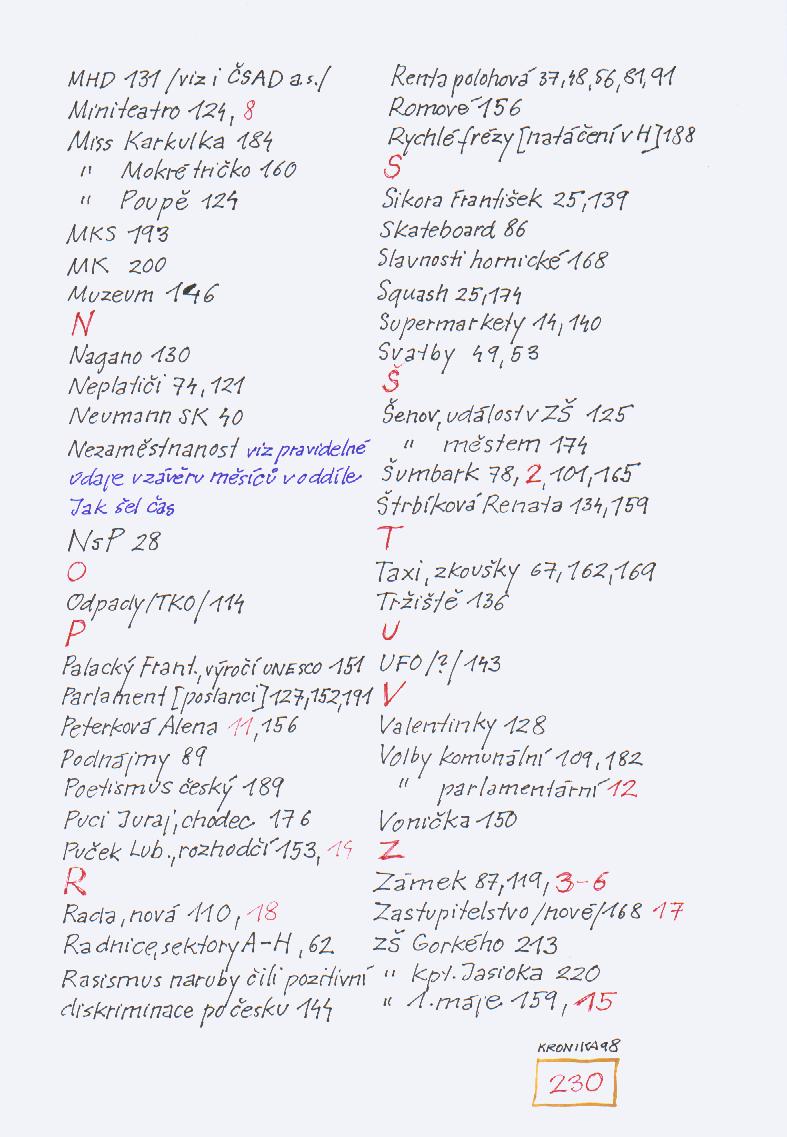 MHD 131 /viz i ČSAD a.s./
Miniteatro 124, 8
Miss Karkulka 184
" Mokré tričko 160
" Poupě 124
MKS 193
MK 200
Muzeum 146
N
Nagano 130
Neplatiči 74, 121
Neumann SK 40
Nezaměstnanost viz pravidelné
údaje v závěru měsíců v oddíle
Jak šel čas
NsP 28
O
Odpady /TKO/ 114
P
Palacký Frant., výročí UNESCO 151
Parlament [poslanci] 127, 152, 191
Peterková Alena 11, 156
Podnájmy 89
Poetismus český 189
Puci Juraj, chodec 176
Puček Lub., rozhodčí 153, 19
R
Rada, nová 110, 18
Radnice, sektory A-H, 62
Rasismus naruby čili pozitivní
diskriminace po česku 144
Renta polohová 37, 48, 56, 81, 91
Romové 156
Rychlé frézy [natáčení v H] 188
S
Sikora František 25, 139
Skateboard 86
Slavnosti hornické 168
Squash 25, 174
Supermarkety 14, 140
Svatby 49, 53
Š
Šenov, událost v ZŠ 125
" městem 174
Šumbark 78, 2, 101, 165
Štrbíková Renata 134, 159
T
Taxi, zkoušky 67, 162, 169
Tržiště 136
U
UFO /?/ 143
V
Valentinky 128
Volby komunální 109, 182
" parlamentární 12
Vonička 150
Z
Zámek 87, 119, 3-6
Zastupitelstvo /nové/ 168 17
ZŠ Gorkého 213
" kpt. Jasioka 220
" 1. máje 159, 15
KRONIKA 98
230